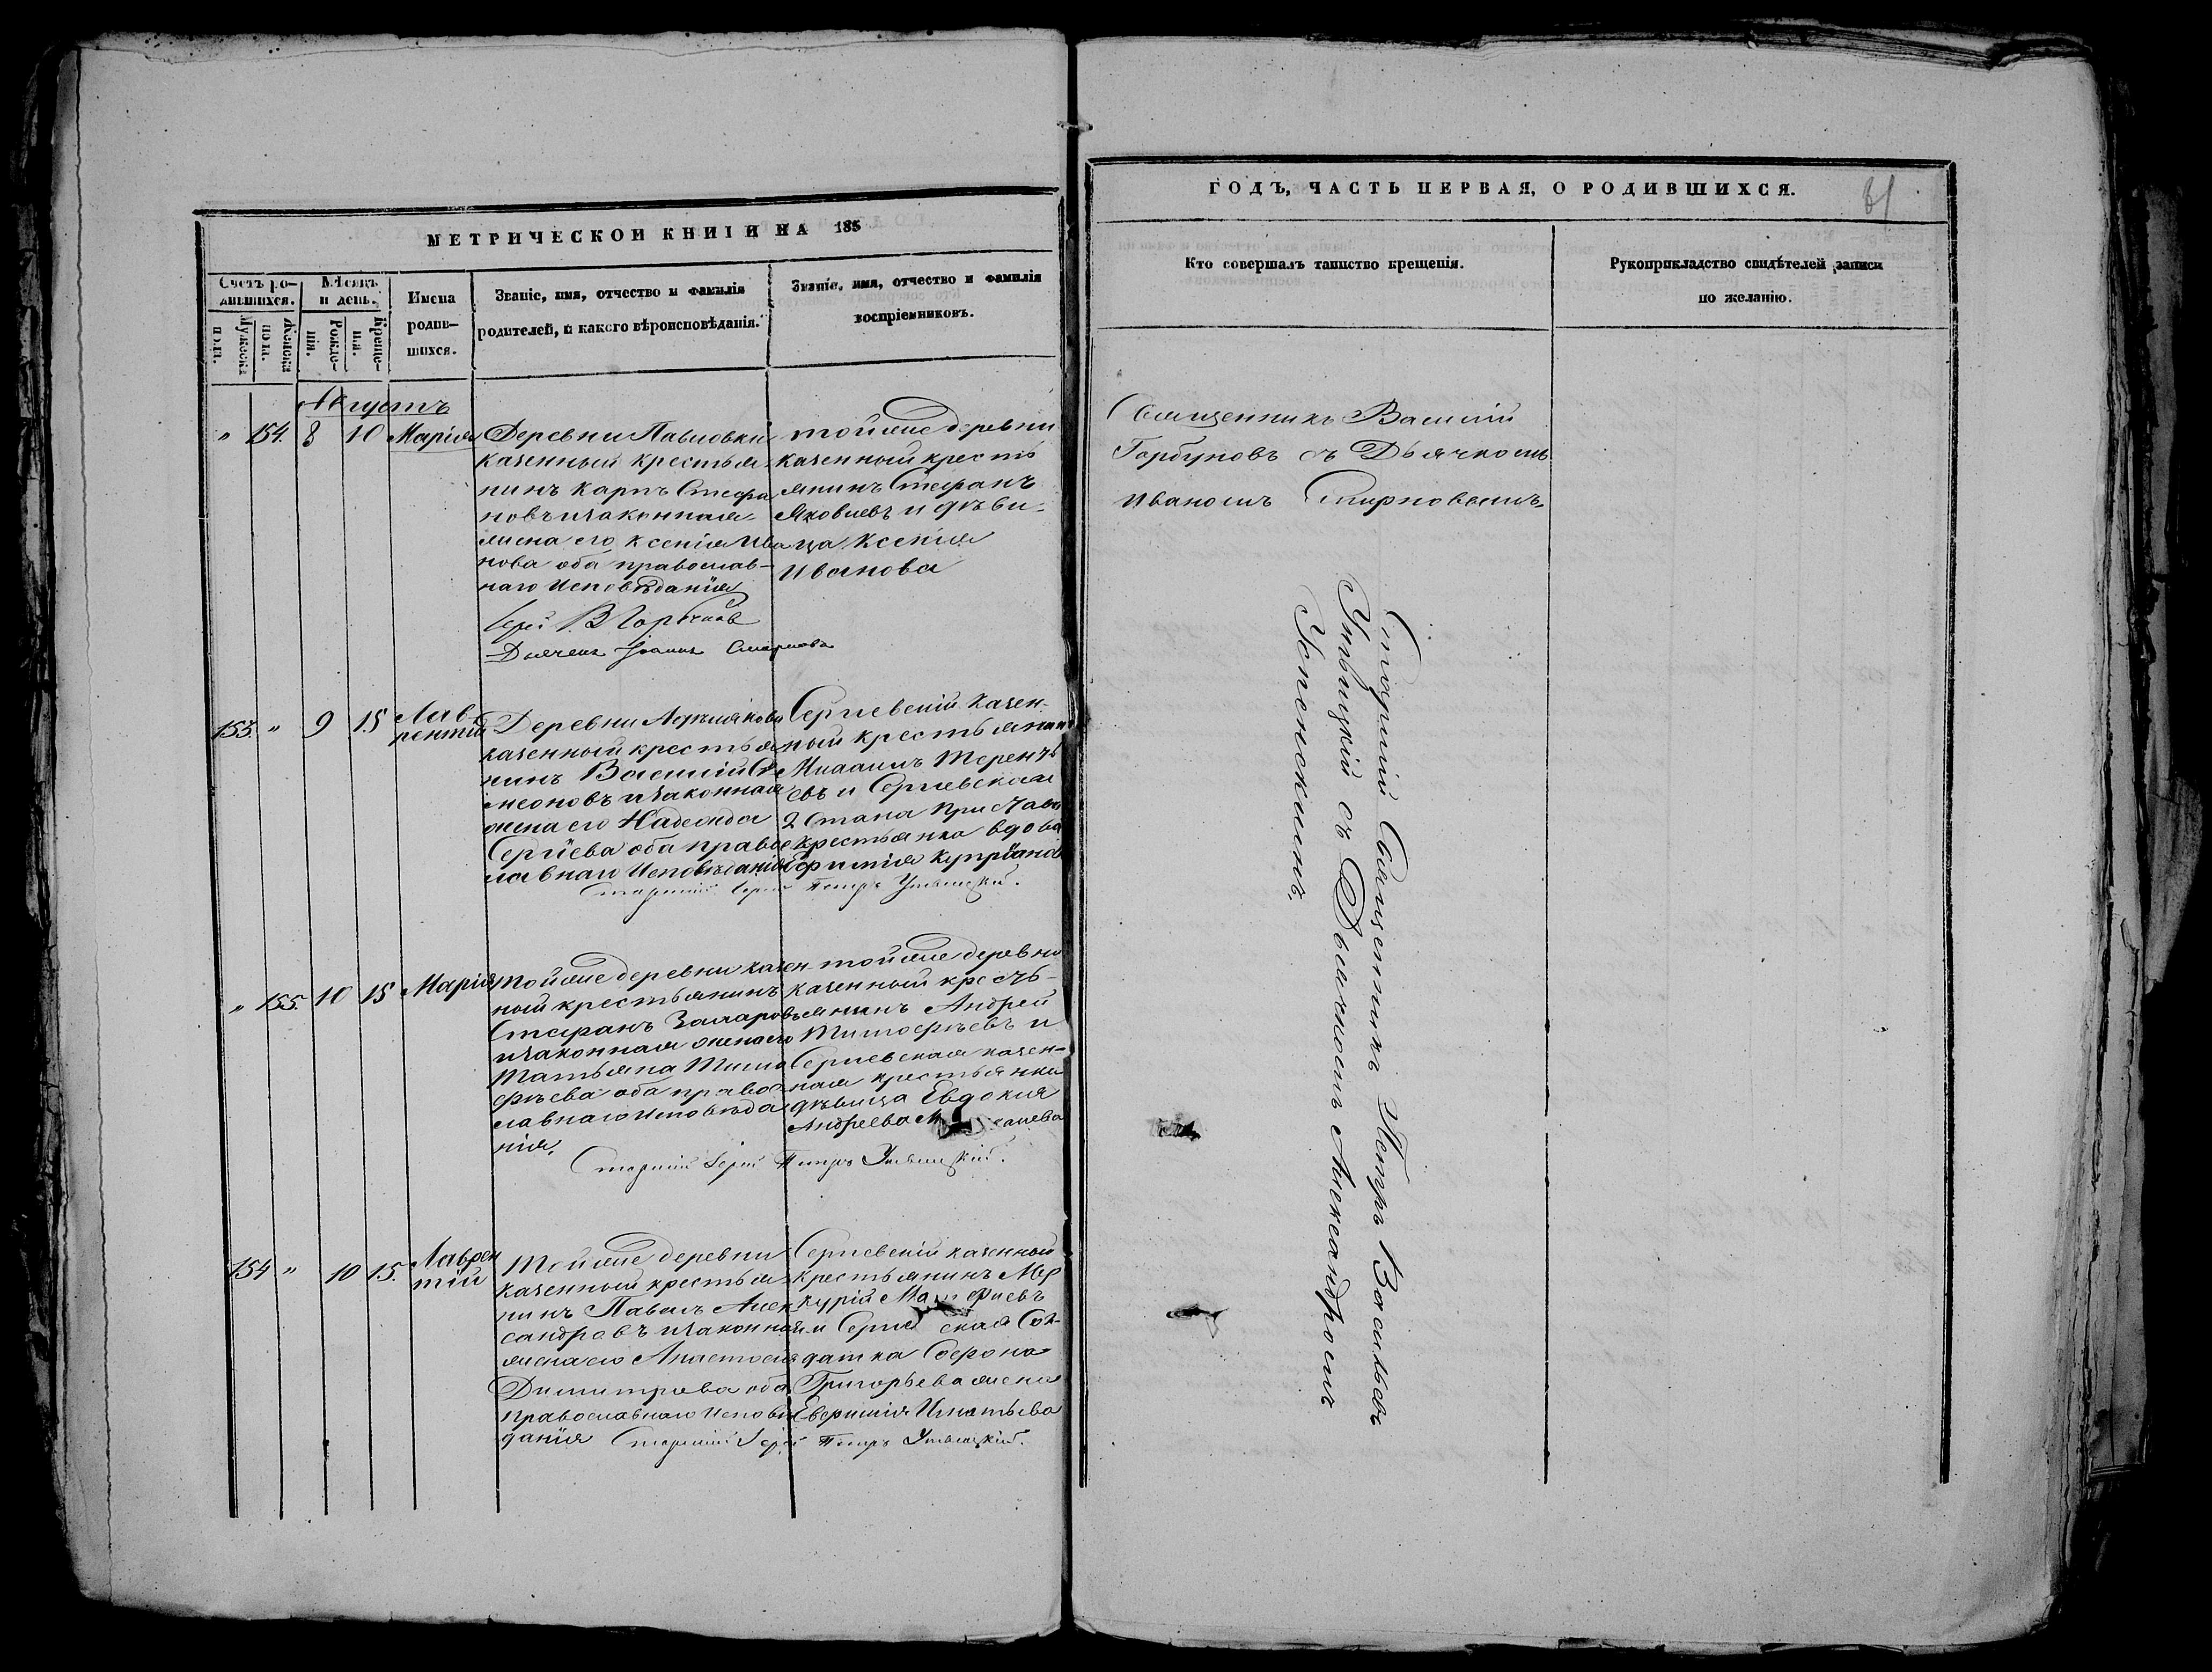 МЕТРИЧЕСКОЙ КНИГИ НА 185
Счетъ ро-
дившихся.
Мужеска
пола.
Женска
пола.
Мѣсяцъ
и день.
Рожде-
нія.
Креще-
нія.
Имена
родив-
шихся.
Званіе, имя, отчество и фамилія
родителей, и какого вѣроисповѣданія.
Званіе, имя, отчество и фамилія
воспріемниковъ.
Августъ
" 154. 8 10 Марія
Деревни Павловки
казенный крестья-
нинъ Карпъ Стефа
новъ и законная
жена его Ксенія Ива
нова оба православ-
наго Исповѣданія
Іерей В Горбуновъ
Дьячекъ Іоаннъ Смирновъ
тойже деревни
казенный кресть
янинъ Стефанъ
Яковлевъ и дѣви-
ца Ксенія
Иванова
153. " 9 15 Лав-
рентій
Деревни
казенный крестья
нинъ Василій Си
меоновъ и законная
жена его Надежда
Сергіева оба правос
лавнаго Исповѣданія
Сергіевскій казен-
ный крестьянинъ
Михаилъ Терентъ
евъ и Сергіевская
2 Стана
крестьянка вдова
Ефимія Купріанов
Старшій Іерей Петръ Унывицкій.
" 155. 10 15 Марія
тойже деревни казен-
ный крестьянинъ
Стефанъ Захаровъ
и законная жена его
Татьяна Тимо
фѣева оба правос
лавнаго Исповѣда
нія,
тойже деревни
казенный кресть-
янинъ Андрей
Тимофѣевъ и
Сергіевская казен-
ная крестьянка
дѣвица Евдокия
Андреева
Старшій Іерей Петръ Унывицкій.
154 " 10 15. Лаврен
тій
Тойже деревни
казенный крестья-
нинъ Павелъ Алек
сандровъ и законная
жена его Анастасия
Димитрова оба
православнаго Исповѣ
данія
Сергіевскій казенный
крестьянинъ Мер
курій
и Сергіевская Сол-
датка Софрона
Григорьева жена
Евфимія Игнатьева
Старшій Іерей Петръ Унывицкій.
ГОДЪ, ЧАСТЬ ПЕРВАЯ, О РОДИВШИХСЯ.
61
Кто совершалъ таинство крещенія.
Рукоприкладство свидѣтелей записи
по желанію.
Священникъ Василій
Горбуновъ съ Дьячкомъ
Иваномъ Смирновымъ,
Старшій Священникъ Петръ Васильевъ
Унывицкій съ Дьячкомъ Александромъ